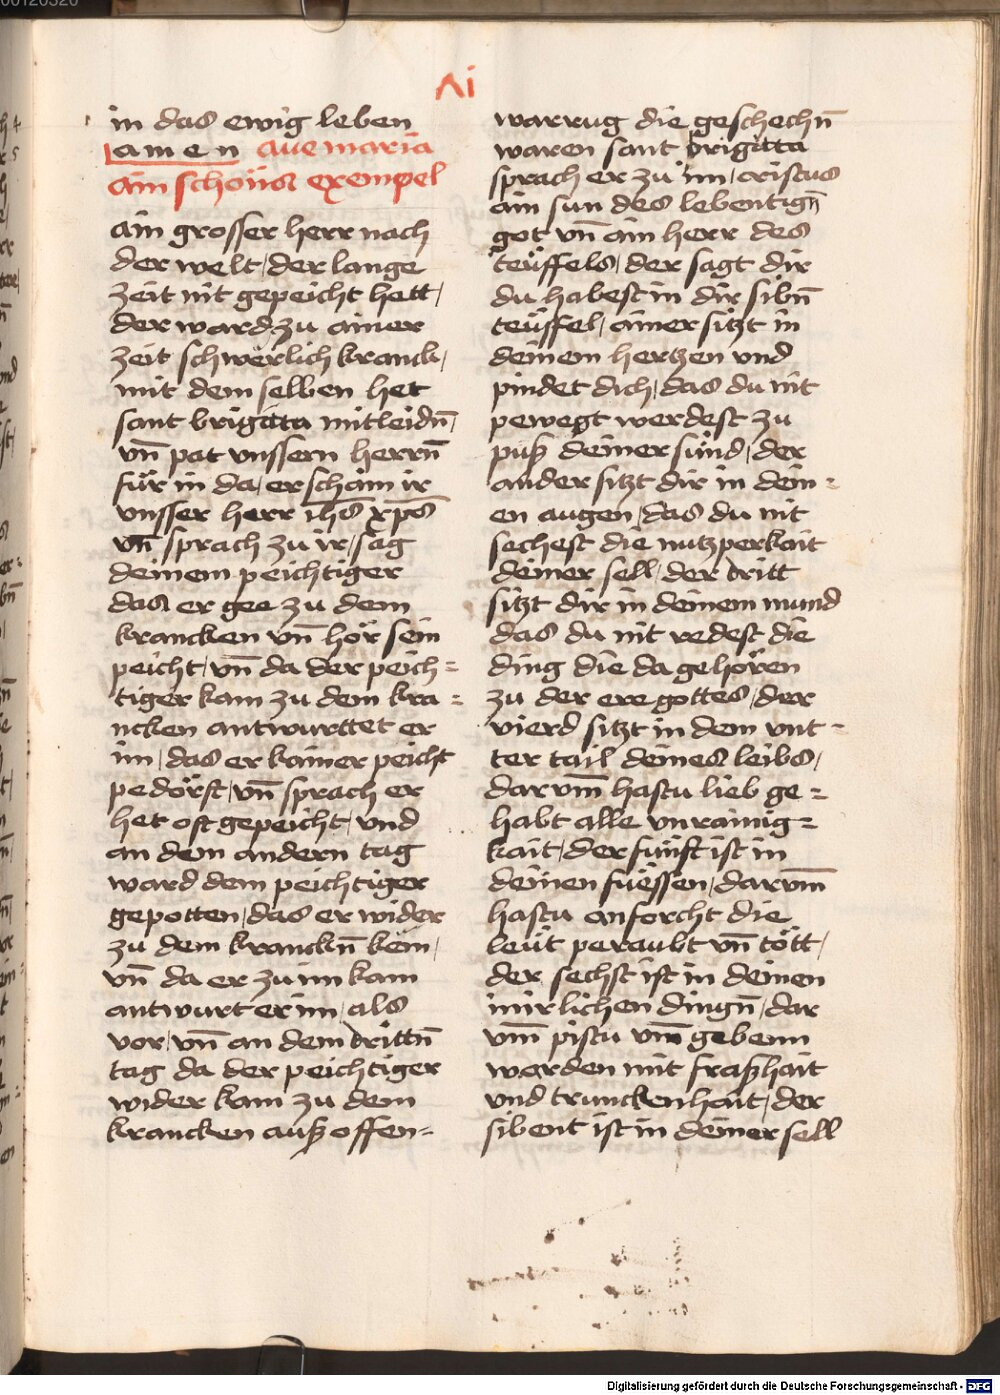 vi
in das ewig leben
amen aue maria
ain schöns exempel
ain grosser herr nach
der welt / der lange
zeit nit gepeicht hett /
der ward zu ainer
zeit schwerlich kranck /
mit dem selben het
sant brigitta mitleidn̄ /
vn̄ pat vnssern herrn̄
für in da / erschain ir
vnsser herr ihs̄ xp̄s
vn̄ sprach zu ir / sag
deinem peichtiger
das er gee zu dem
krancken vn̄ hör sein
peicht / vn̄ da der peich=
tiger kam zu dem kra=
ncken antwurttet er
im / das er kainer peicht
pedörft / vn̄ sprach er
het oft gepeicht / vnd
an dem andern tag
ward dem peichtiger
gepotten / das er wider
zu dem kranckn̄ kem /
vn̄ da er zu im kam
antwurt er im / als
vor / vn̄ an dem drittn̄
tag da der peichtiger
wider kam zu dem
krancken auß offen=
warrug die geschechn̄
waren sant brigitta
sprach er zu im / cristus
ain sun des lebentign̄
got vn̄ ain herr des
teüffels / der sagt dir
du habest in dir sibn̄
teüffel / ainer sitzt in
deinem hertzen vnd
pindet dich / das du nit
pewegt werdest zu
puß deiner sünd / der
ander sitzt dir in dein=
en augen / das du nit
sechest die nutzperkait
deiner sell / der dritt
sitzt dir in deinem mund
das du nit redest die
ding die da gehören
zu der ere gottes / der
vierd sitzt in dem vnt=
ter tail deines leibs /
darvm̄ hastu lieb ge=
habt alle vnrainig=
kait / der fünft ist in
deinen füessen / darvm̄
hastu an forcht die
leüt peraubt vn̄ tött /
der sechst ist in deinen
inirlichen dingn̄ / dar
vm̄ pistu vm̄ gebenn
worden mit fraßhait
vnd trunckenhait / der
sibent ist in deiner sell
Digitalisierung gefördert durch die Deutsche Forschungsgemeinschaft - DFG